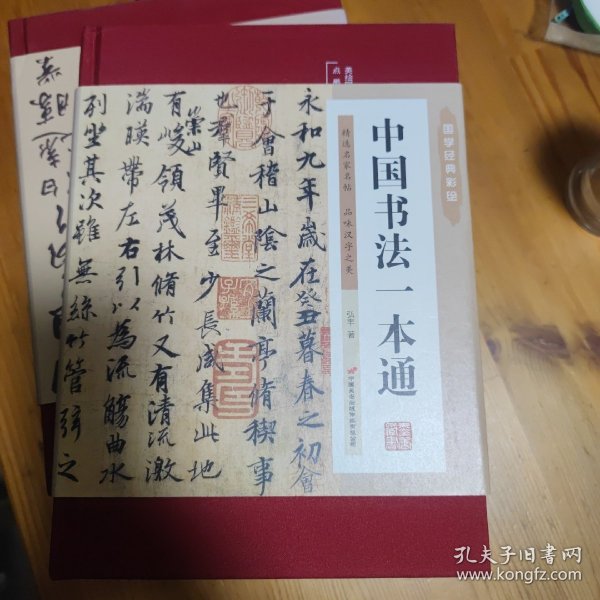 国学经典彩绘
中国书法一本通
精选名家名帖 品味汉字之美
弘丰 著
永和九年歲在癸丑暮春之初會
于會稽山陰之蘭亭脩禊事
也羣賢畢至少長咸集此地
有崇山峻領茂林脩竹又有清流激
湍暎帶左右引以為流觴曲水
列坐其次雖無絲竹管弦之
美绘
点
孔夫子旧书网
www.kongfz.com